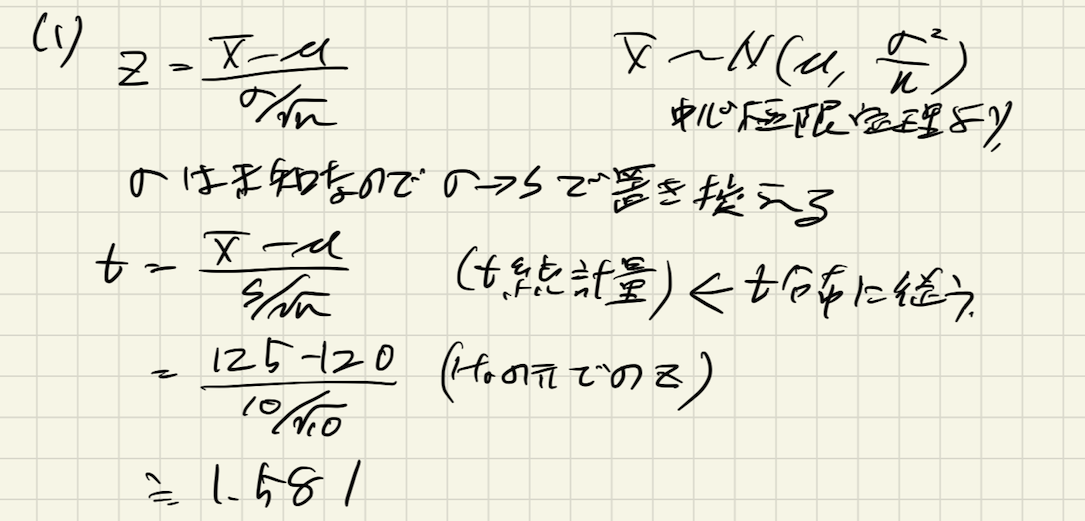 (1) Z = (X̄-μ)/(σ/√n)
X̄ ~ N(μ, σ²/n)
中心極限定理より、
σは未知なのでσ→sで置き換える
t = (X̄-μ)/(s/√n) (t統計量) ← t分布に従う
= (125-120)/(10/√10) (H₀の元でのz)
≒ 1.581